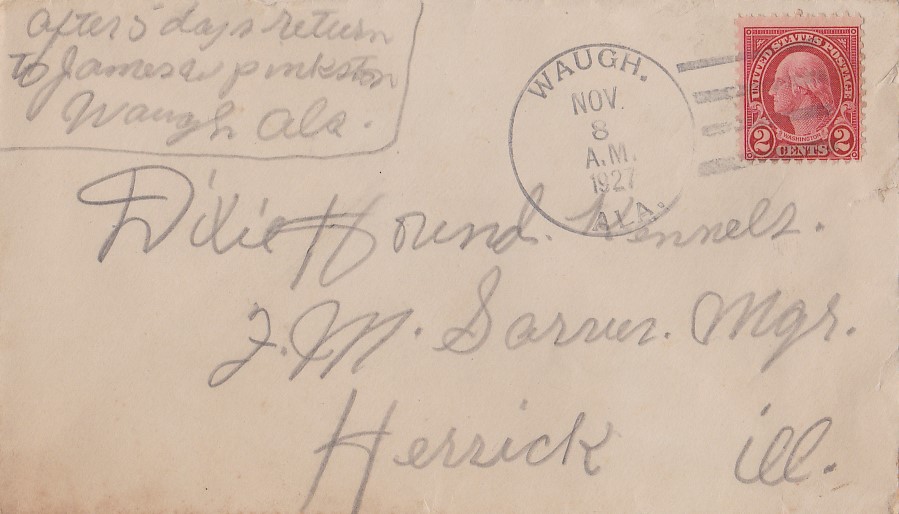 after 5 days return
to James a pinkston
Waugh Ala.
WAUGH.
NOV.
8
A.M.
1927
ALA.
UNITED STATES POSTAGE
WASHINGTON
2 CENTS 2
Dixie Hound. Kennels.
F. M. Sarver. Mgr.
Herrick ill.